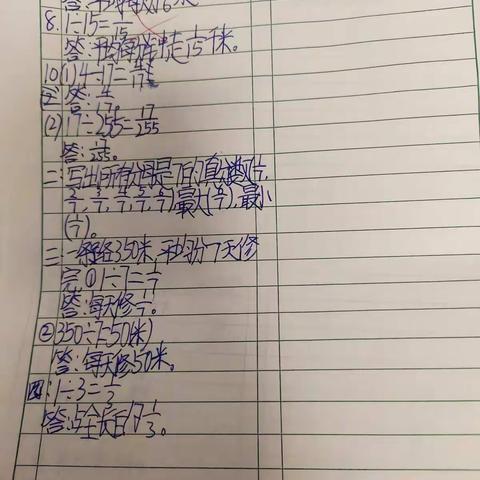 8. 1÷15=1/15
答:平均每分钟走1/15千米。
10.(1)4÷17=4/17
答:4/17
(2)17÷255=17/255
答:17/255。
二:写出所有分母是7的真分数(1/7,
2/7,3/7,4/7,5/7,6/7)最大(6/7),最小
(1/7)。
三:一条路350米,平均分7天修
完①1÷7=1/7
答:每天修1/7。
②350÷7=50(米)
答:每天修50米。
四:1÷3=1/3
答:占全长的1/3。